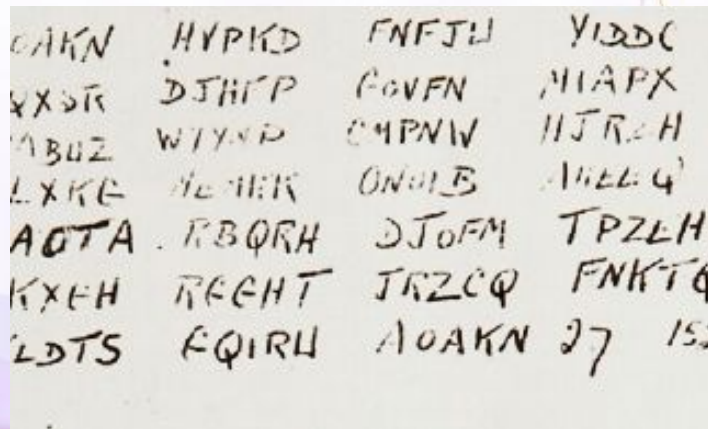 OAKN HVPKD FNFJU YIDDC
QXSR DJHFP GOVFN MIAPX
ABUZ WYYNP CMPNW HJRZH
LXKG ONOIB
AOTA RBQRH DJOFM TPZEH
KXGH RGGHT JRZCQ FNKTQ
LDTS GQIRU AOAKN 27